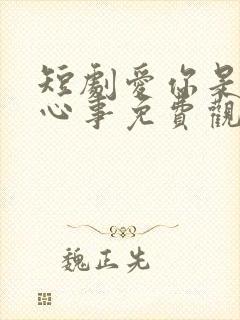 短劇愛你是
心事免費觀
魏正先